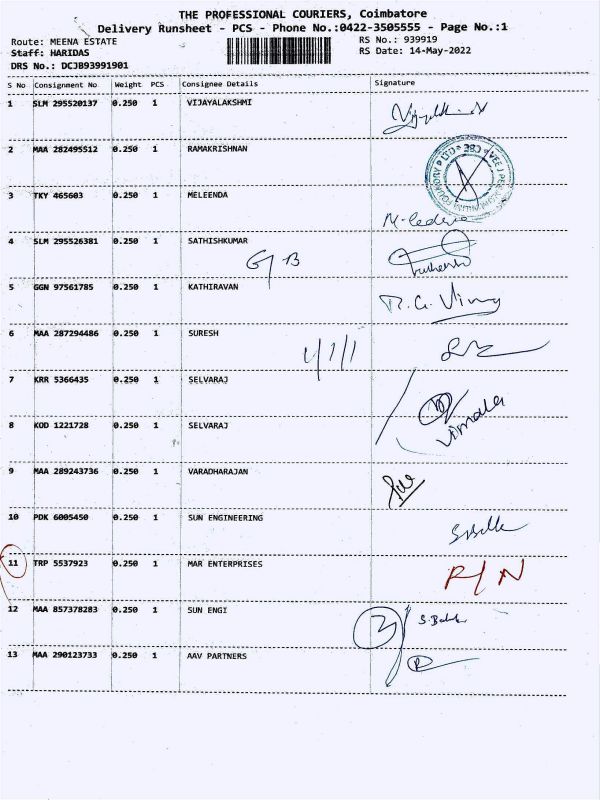 THE PROFESSIONAL COURIERS, Coimbatore
Delivery Runsheet - PCS - Phone No.:0422-3505555 - Page No.:1
Route: MEENA ESTATE
RS No.: 939919
Staff: HARIDAS
RS Date: 14-May-2022
DRS No.: DCJB93991901
S No Consignment No Weight PCS Consignee Details Signature
1 SLM 295520137 0.250 1 VIJAYALAKSHMI
2 MAA 282495512 0.250 1 RAMAKRISHNAN
3 TKY 465603 0.250 1 MELEENDA
4 SLM 295526381 0.250 1 SATHISHKUMAR
G B
5 GGN 97561785 0.250 1 KATHIRAVAN
6 MAA 287294486 0.250 1 SURESH
7 KRR 5366435 0.250 1 SELVARAJ
Vimala
8 KOD 1221728 0.250 1 SELVARAJ
9 MAA 289243736 0.250 1 VARADHARAJAN
10 PDK 6005450 0.250 1 SUN ENGINEERING
11 TRP 5537923 0.250 1 MAR ENTERPRISES R/N
12 MAA 857378283 0.250 1 SUN ENGI
13 MAA 290123733 0.250 1 AAV PARTNERS